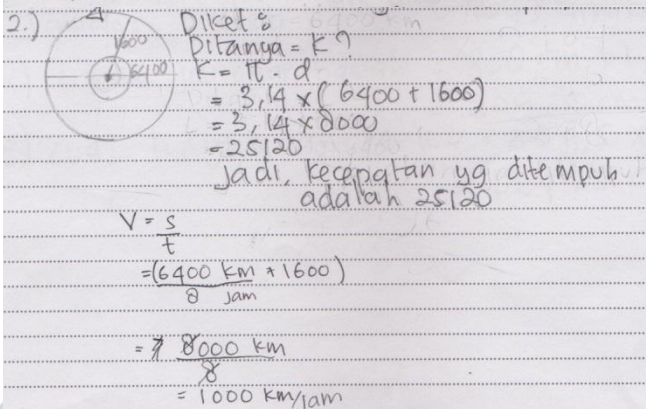 2.)
1600
6400
Diket :
Ditanya = K ?
K = π . d
= 3,14 × ( 6400 + 1600)
= 3,14 × 8000
= 25120
Jadi, kecepatan yg ditempuh
adalah 25120
V = s/t
= (6400 km + 1600)
8 jam
= 8000 km
8
= 1000 km/jam